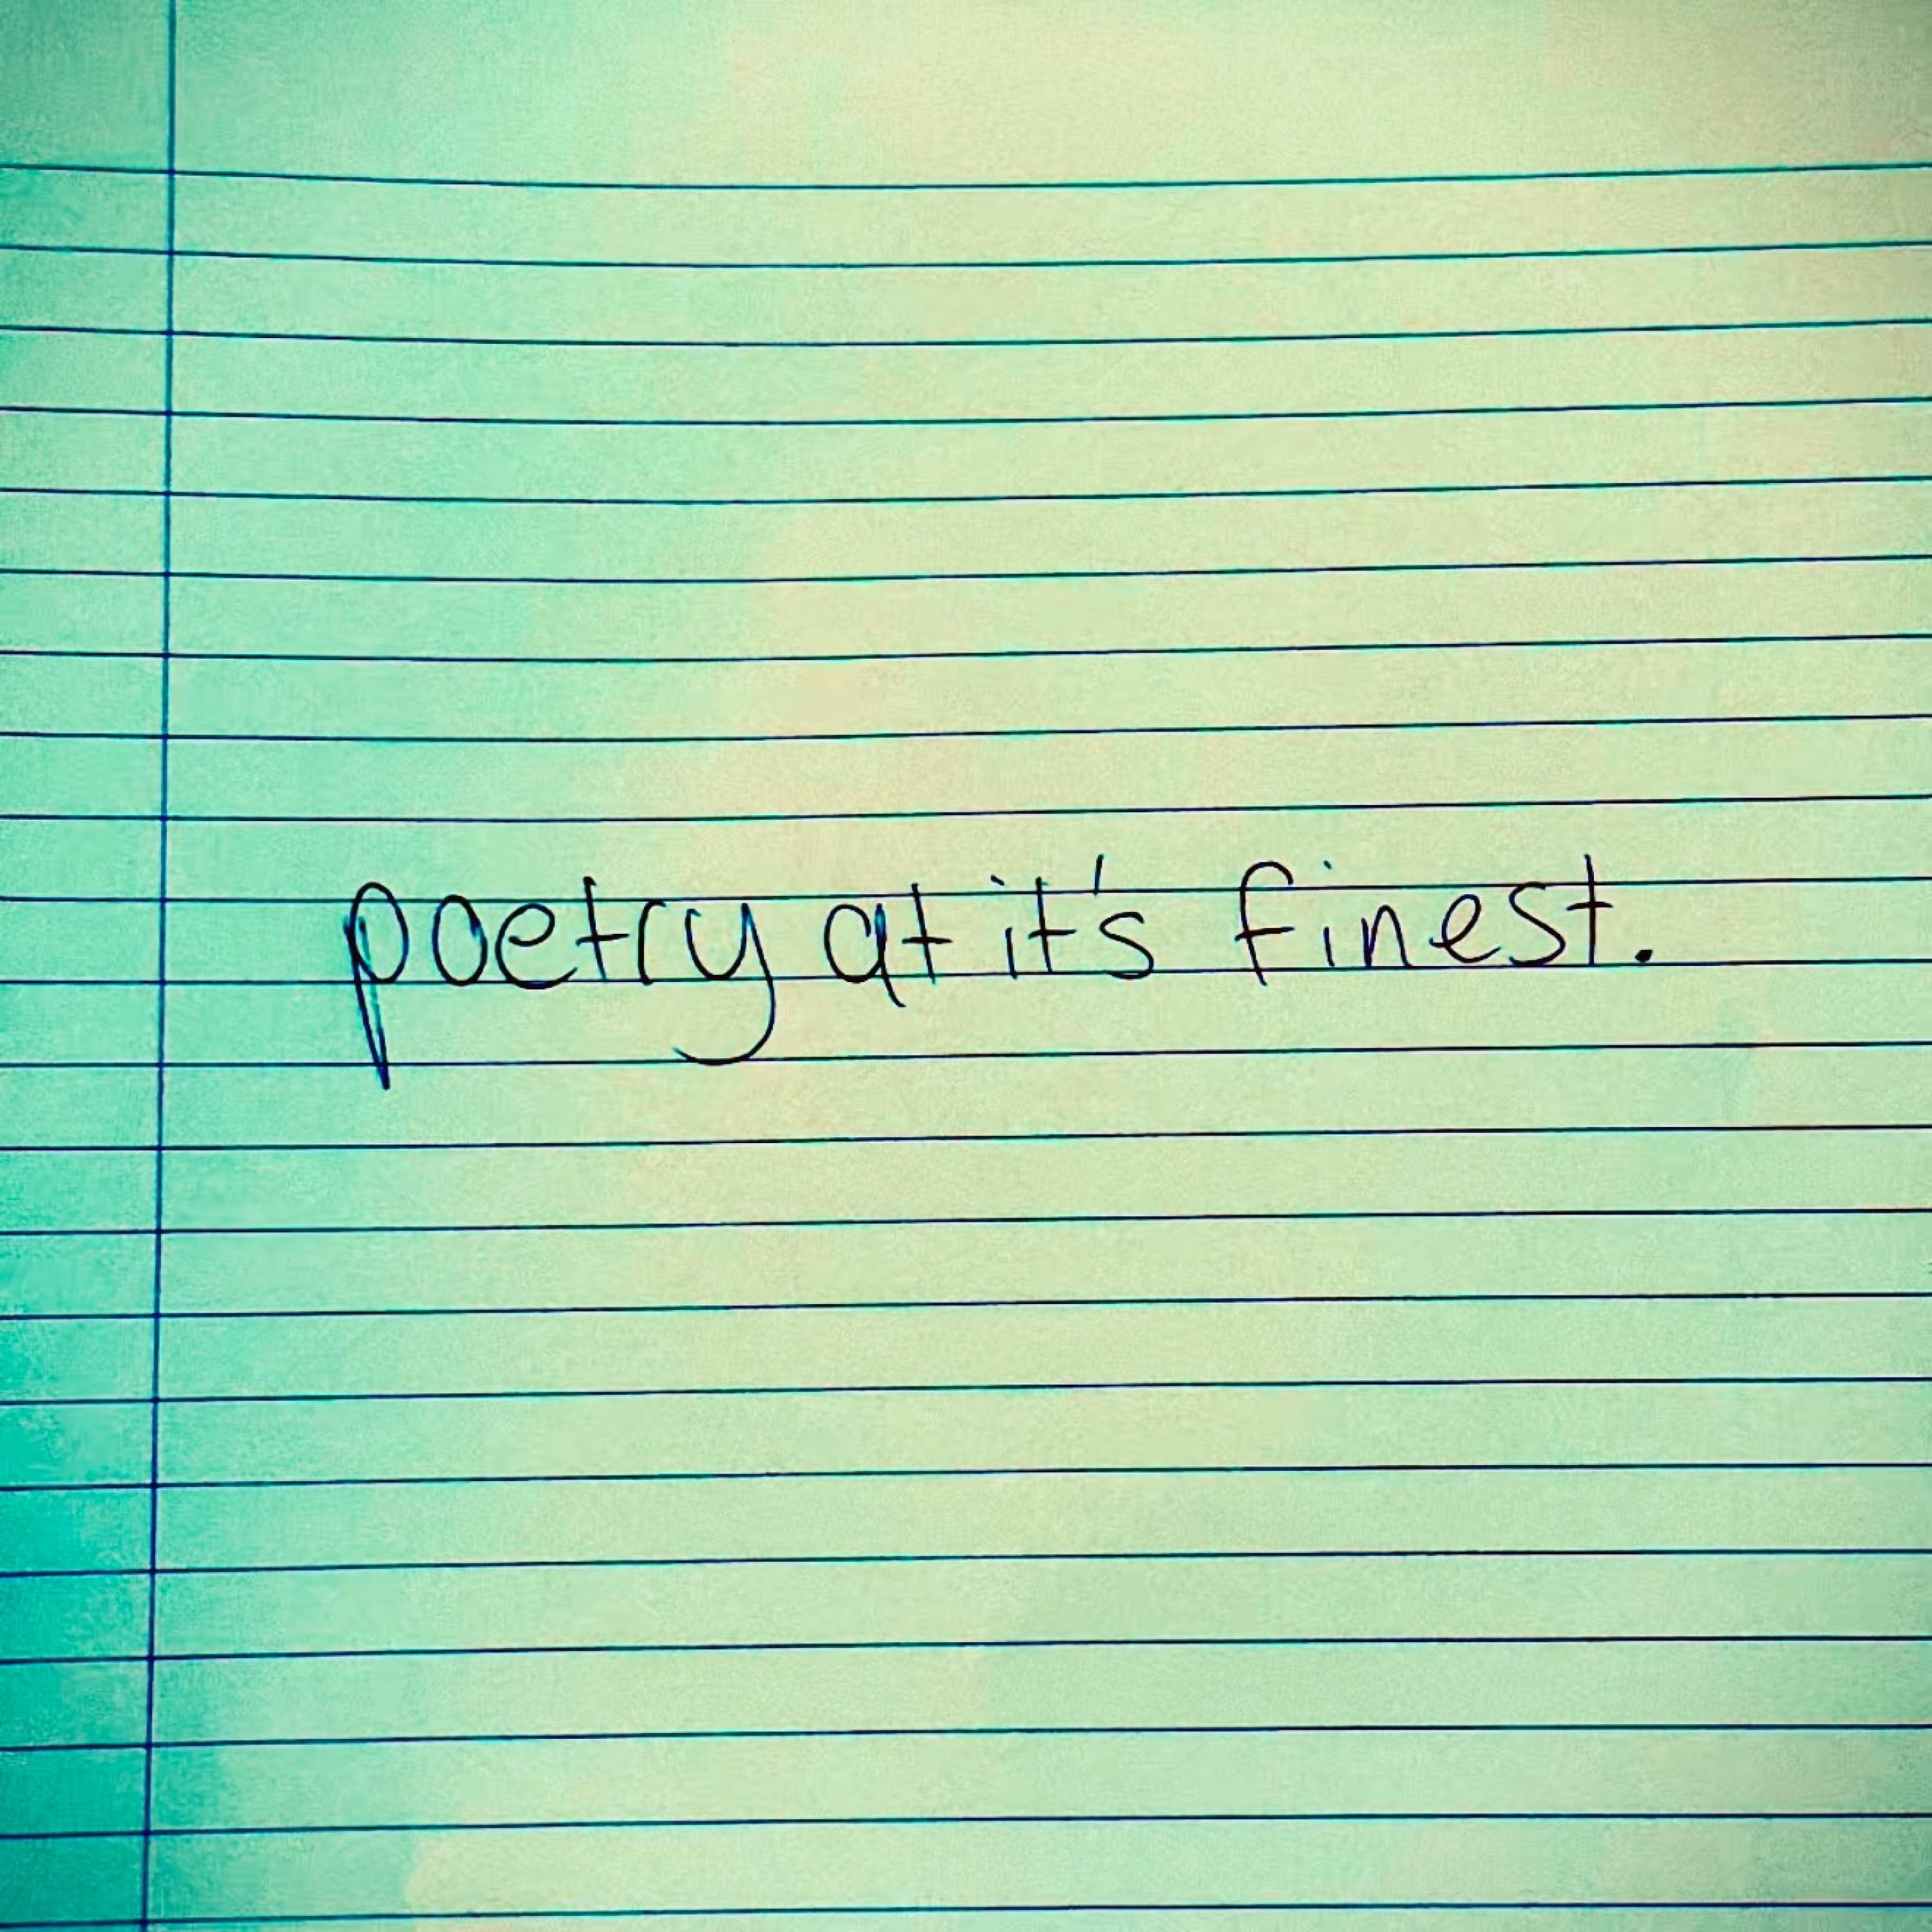 poetry at it's finest.